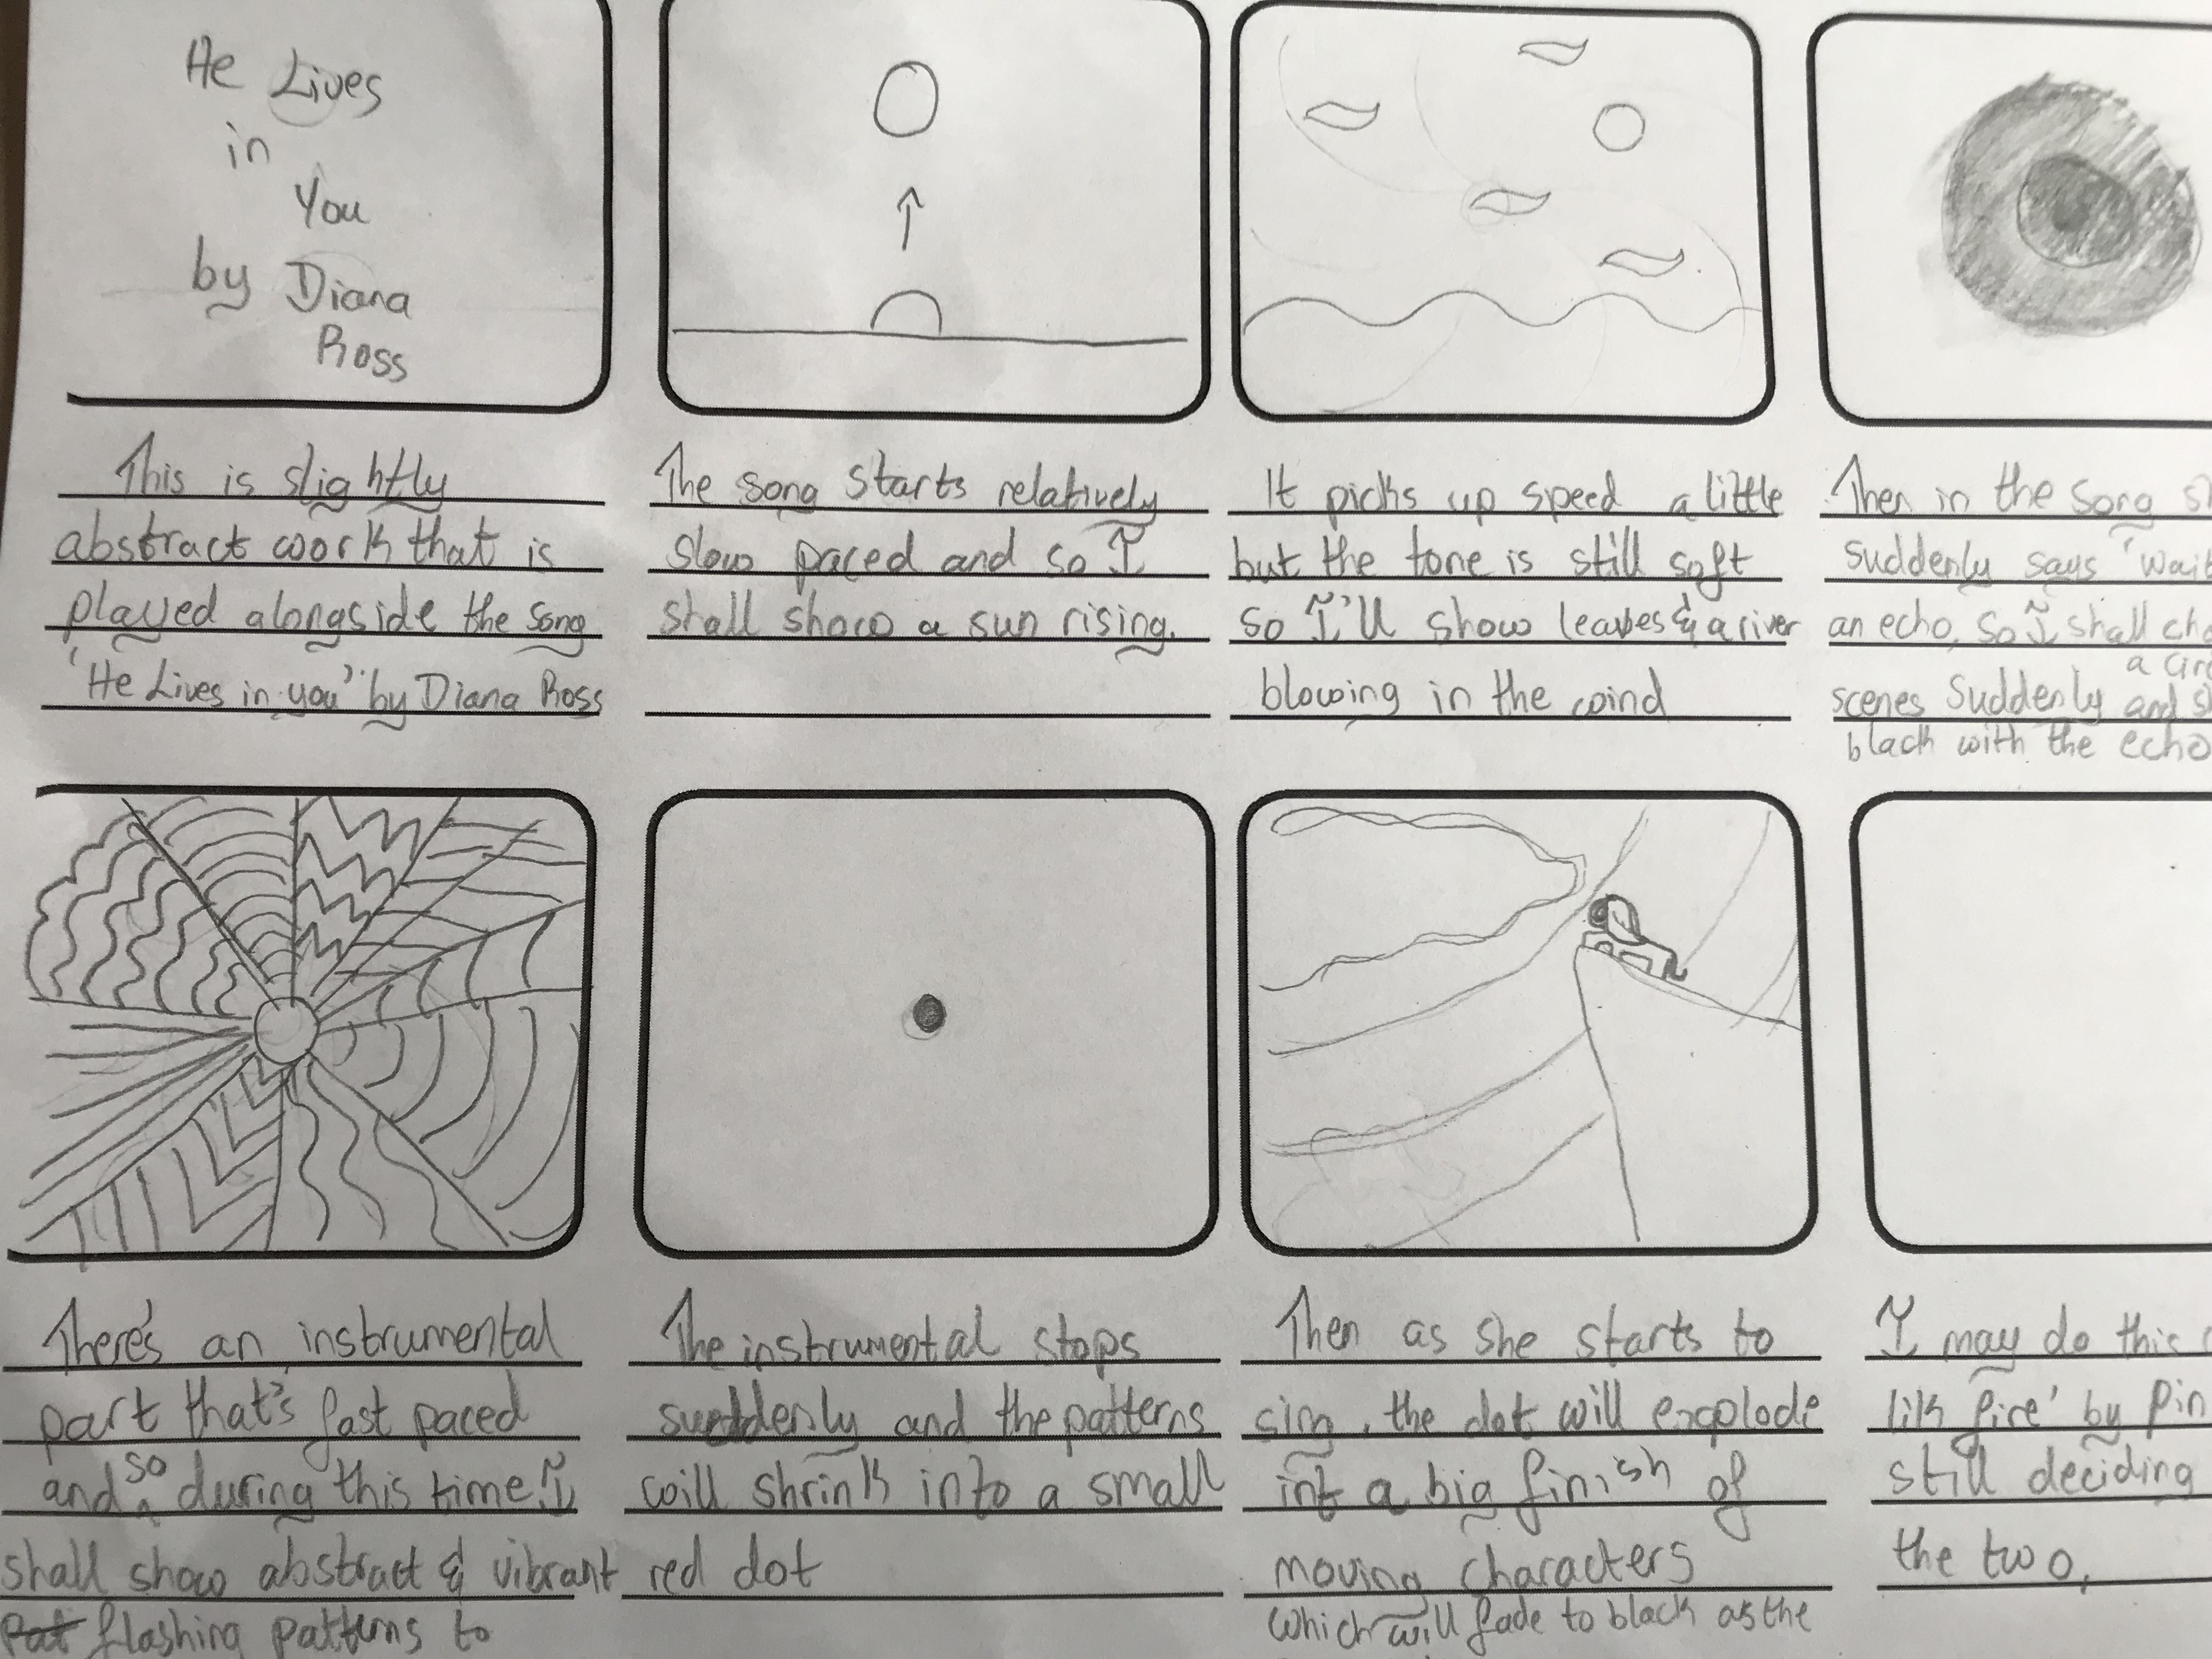 He Lives
in
You
by Diana
Ross
This is slightly
abstract work that is
played alongside the song
'He Lives in you' by Diana Ross
The song starts relatively
slow paced and so I
shall show a sun rising.
It picks up speed a little
but the tone is still soft
so I'll show leaves & a river
blowing in the wind
Then in the song
suddenly says 'wait
an echo, so I shall
a
scenes suddenly and
black with the echo
There's an instrumental
part that's fast paced
and so during this time I
shall show abstract & vibrant
flashing patterns to
The instrumental stops
suddenly and the patterns
will shrink into a small
red dot
Then as she starts to
sing, the dot will explode
into a big finish of
moving characters
which will fade to black as the
I may do this
lik fire' by
still deciding
the two,